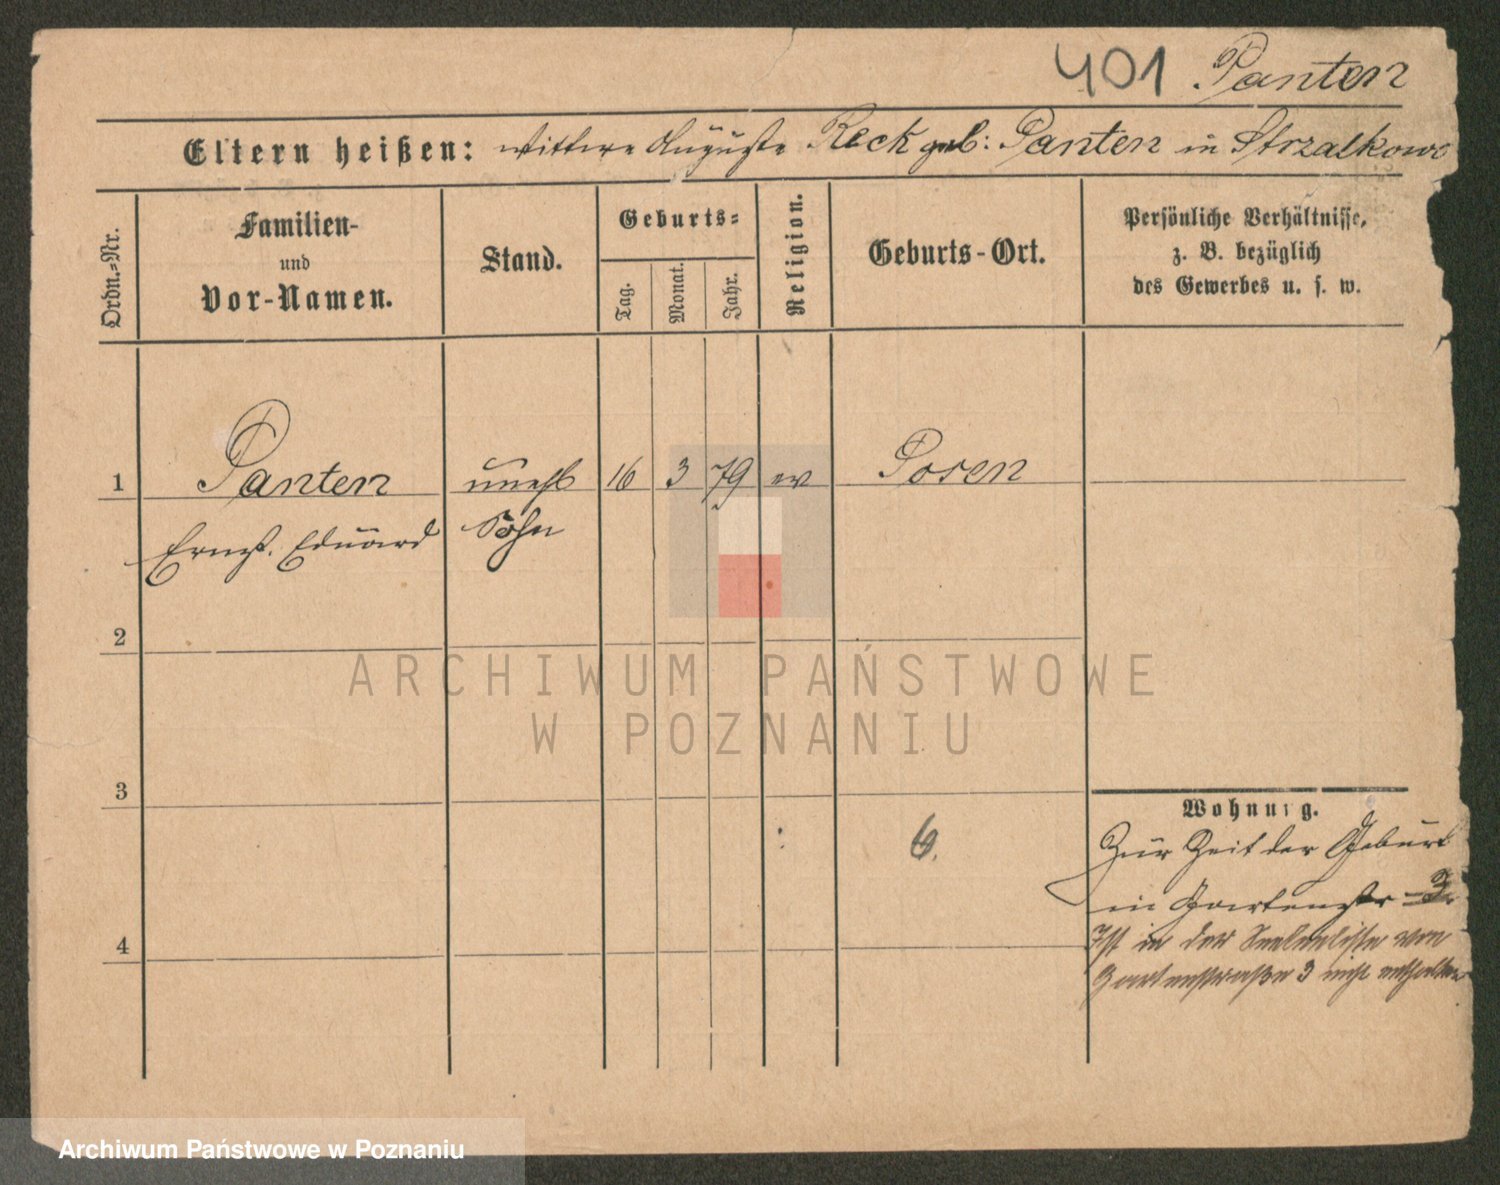 401 Panten
Eltern heißen: Wittwe Auguste Reck geb: Panten in Strzalkowo
Ordn.=Nr.
Familien-
und
Vor-Namen.
Stand.
Geburts=
Tag.
Monat.
Jahr.
Religion.
Geburts-Ort.
Persönliche Verhältnisse,
z. B. bezüglich
des Gewerbes u. s. w.
1 Panten unehl 16 3 79 ev Posen
Ernst Eduard Sohn
2
ARCHIWUM PAŃSTWOWE
W POZNANIU
3
Wohnung.
6.
Zur Zeit der Geburt
in Gartenstr 3
4
Ist in der Seelenliste von
Gartenstraße 3 nicht enthalten
Archiwum Państwowe w Poznaniu